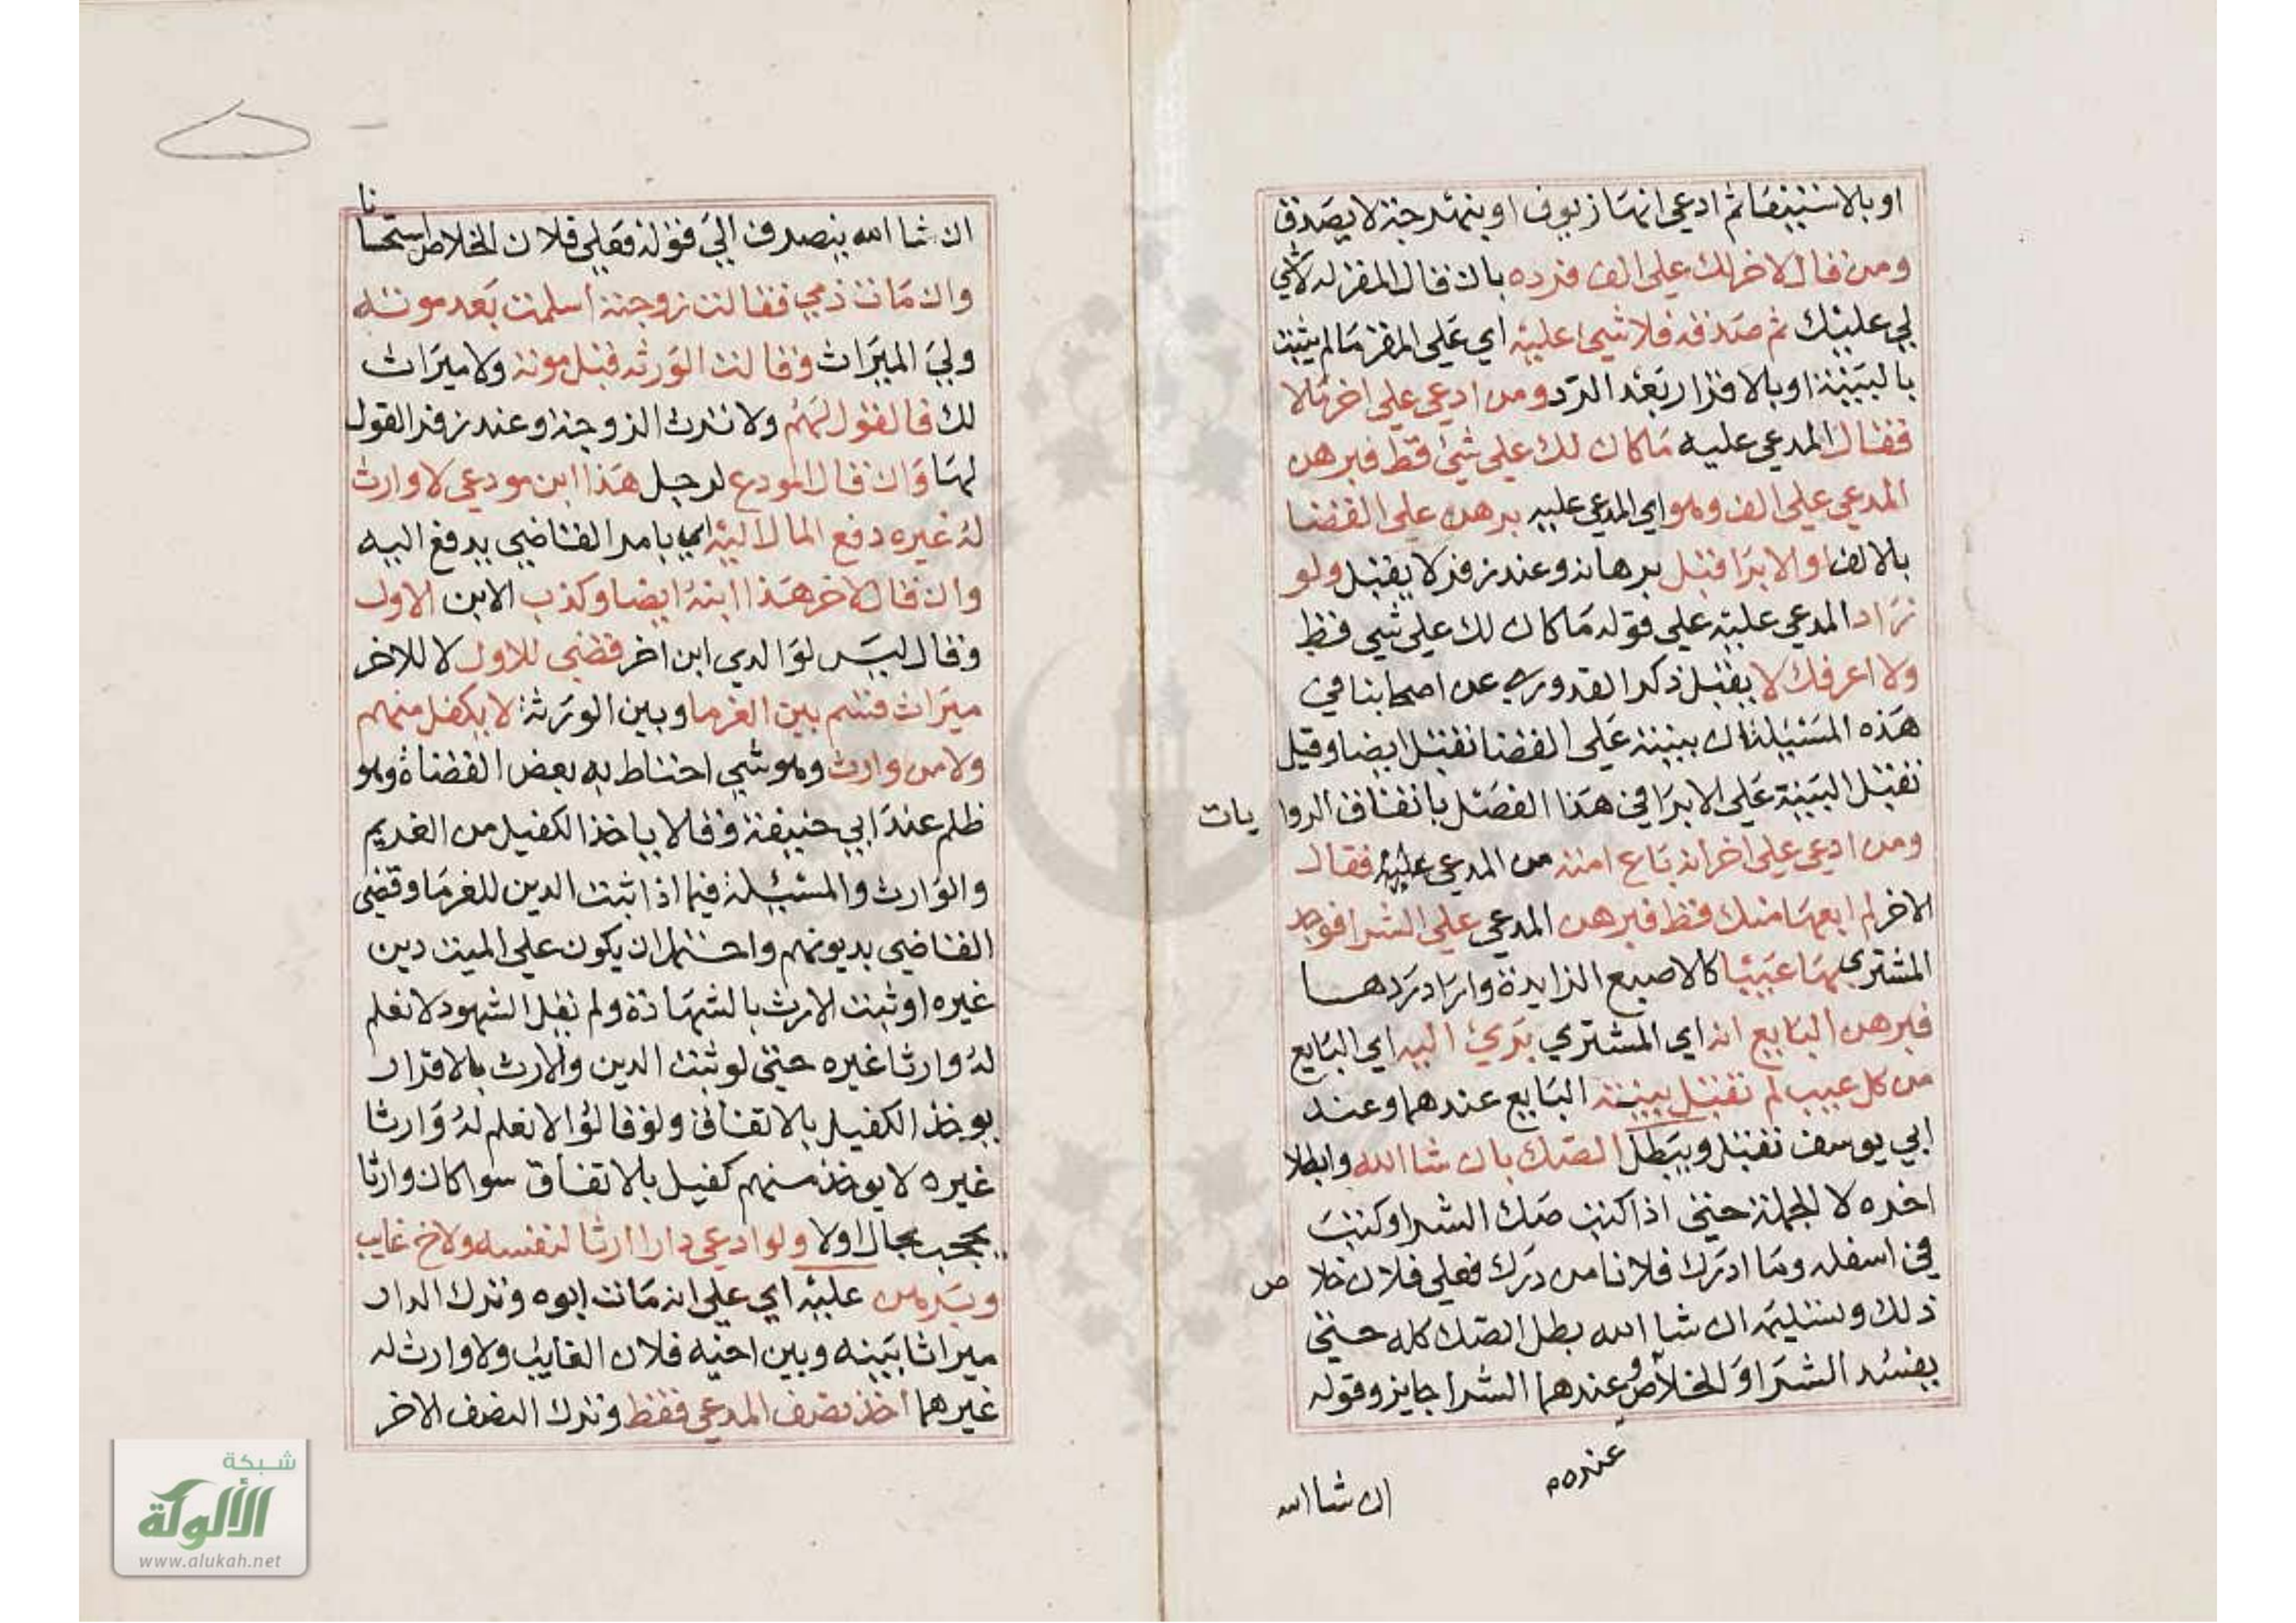 او بالاستيفا ثم ادعي انها زيوف او بنهرجة لا يصدق
ومن قال لاخر لك علي الف فرده بان قال المقر له لا شي
لي عليك ثم صدقه فلا شيء عليه اي علي المقر ما لم يثبت
بالبينة او بالاقرار بعد الرد ومن ادعي علي اخر مالا
فقال المدعي عليه ما كان لك علي شئ قط فبرهن
المدعي علي الف وهو اي المدعي عليه برهن علي القضا
بالالف او الابرا قبل برهانه وعند زفر لا يقبل ولو
زاد المدعي عليه علي قوله ما كان لك علي شي قط
ولا اعرفك لا يقبل ذكر القدوري عن اصحابنا في
هذه المسئيلة ان بينته علي القضا تقبل ايضا وقيل
تقبل البينة علي الابرا في هذا الفصل باتفاق الروايات
ومن ادعي علي اخر انه باع امته من المدعي عليه فقال
الاخر لم ابعها منك قط فبرهن المدعي علي الشرا فوجد
المشتري بها عيبا كالاصبع الزايدة واراد ردها
فبرهن البايع انه اي المشتري بريئ اليه اي البايع
من كل عيب لم تقبل بينة البايع عندهما وعند
ابي يوسف تقبل ويبطل الصك بان شا الله وابطلا
اخره لا الجملة حتي اذا كتب صك الشرا وكتب
في اسفله وما ادرك فلانا من درك فعلي فلان خلاص
ذلك وتسليمه ان شا الله بطل الصك كله حتي
يفسد الشرا والخلاص عنده وعندهما الشرا جايز وقوله
ان شا الله
ان شا الله ينصرف الي قوله فعلي فلان الخلاص استحسانا
وان مات ذمي فقالت زوجته اسلمت بعد موته
ولي الميراث وقالت الورثه قبل موته ولا ميراث
لك فالقول لهم ولا ترث الزوجة وعند زفر القول
لها وان قال المودع لرجل هذا ابن مودعي لا وارث
له غيره دفع المال اليه اي يامر القاضي يدفع اليه
وان قال لاخر هذا ابنه ايضا وكذب الابن الاول
وقال ليس لوالدي ابن اخر قضي للاول لا للاخر
ميراث قسم بين الغرما وبين الورثة لا يكفل منهم
ولا من وارث وهو شي احتاط به بعض القضاة وهو
ظلم عند ابي حنيفة وقالا ياخذ الكفيل من الغريم
والوارث والمسئيلة فيما اذا ثبت الدين للغرما وقضي
القاضي بديونهم واحتمل ان يكون علي الميت دين
غيره او ثبت الارث بالشهادة ولم تقل الشهود لا نعلم
له وارثا غيره حتي لو ثبت الدين والارث بالاقرار
يوخذ الكفيل بالاتفاق ولو قالوا لا نعلم له وارثا
غيره لا يوخذ منهم كفيل بالاتفاق سوا كان وارثا
يحجب بحال اولا ولو ادعي دارا ارثا لنفسه ولاخ غايب
وبرهن عليه اي علي انه مات ابوه وترك الدار
ميراثا بينه وبين اخيه فلان الغايب ولا وارث له
غيرهما اخذ نصف المدعي فقط وترك النصف الاخر
شبكة
الألوكة
www.alukah.net